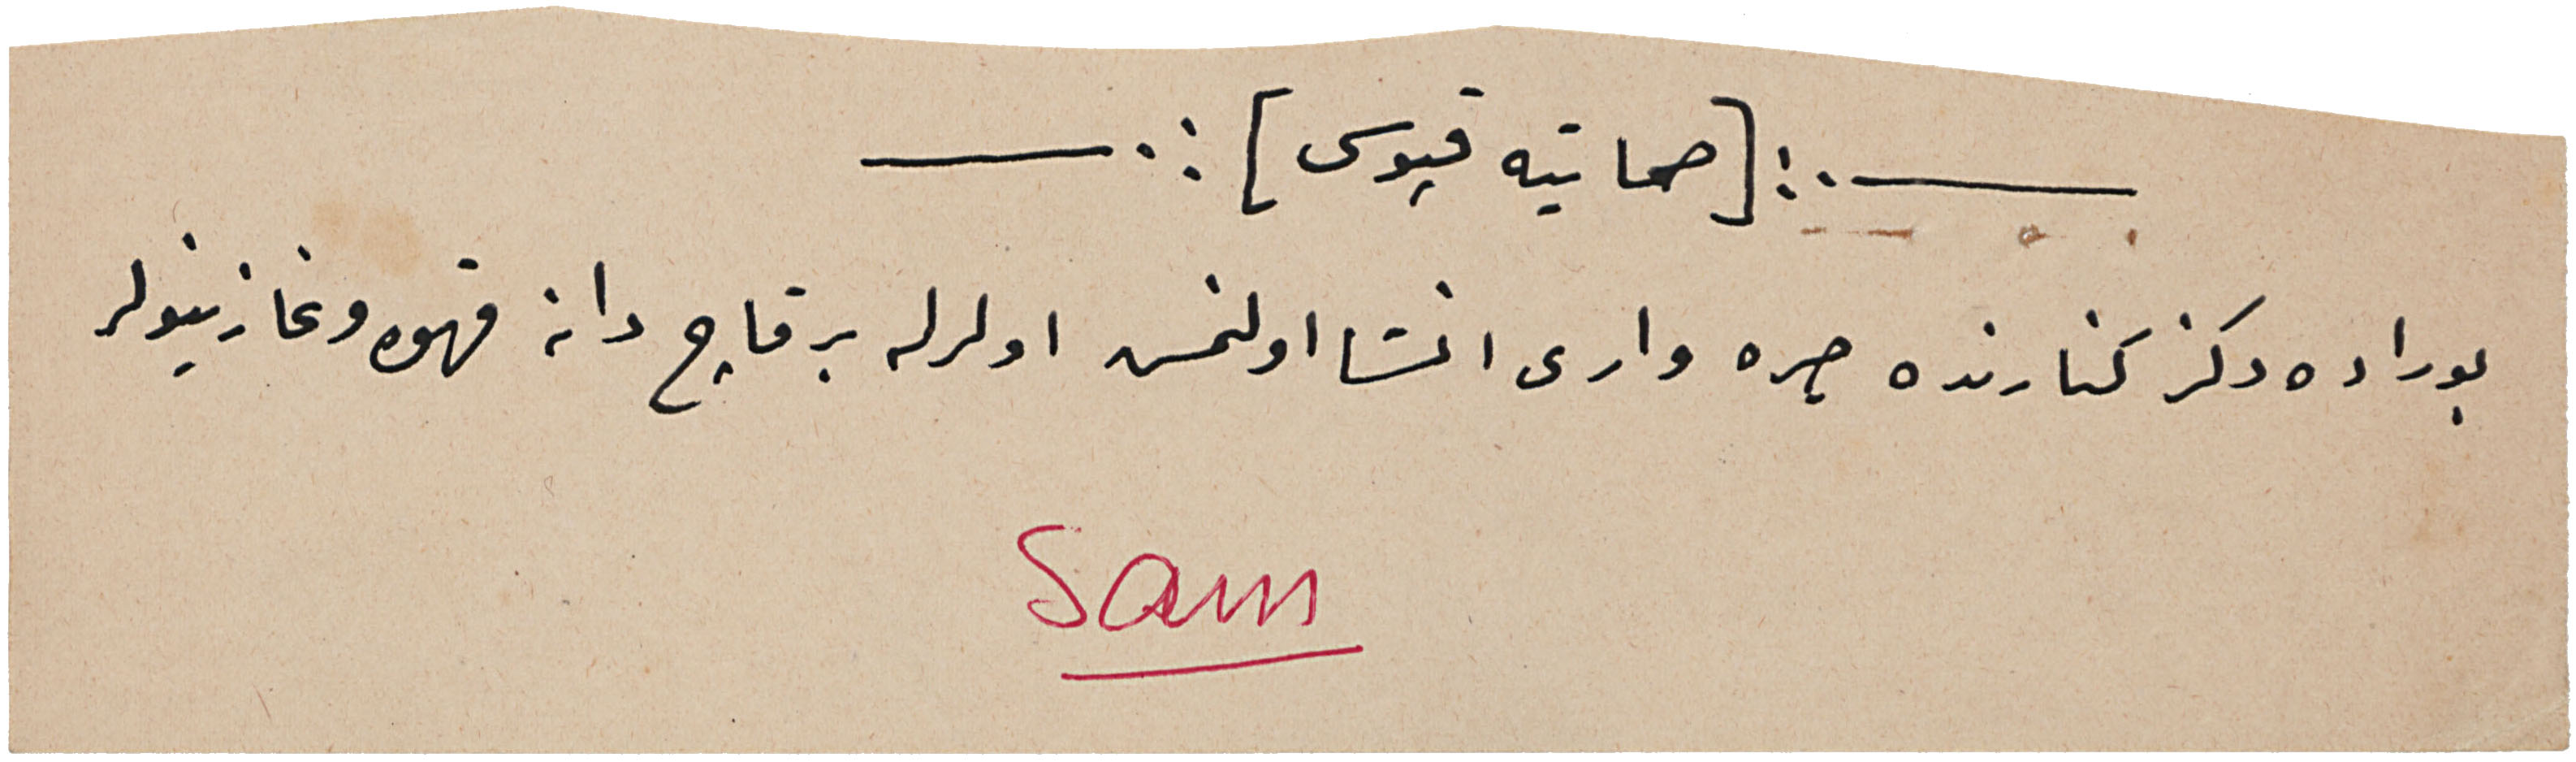 ـــــ.:[صماتیه قپوسی]:.ـــــ
بوراده دکز کنارنده صره واری انشا اولنمش اولرله بر قاچ دانه قهوه وغازینولر
Sam